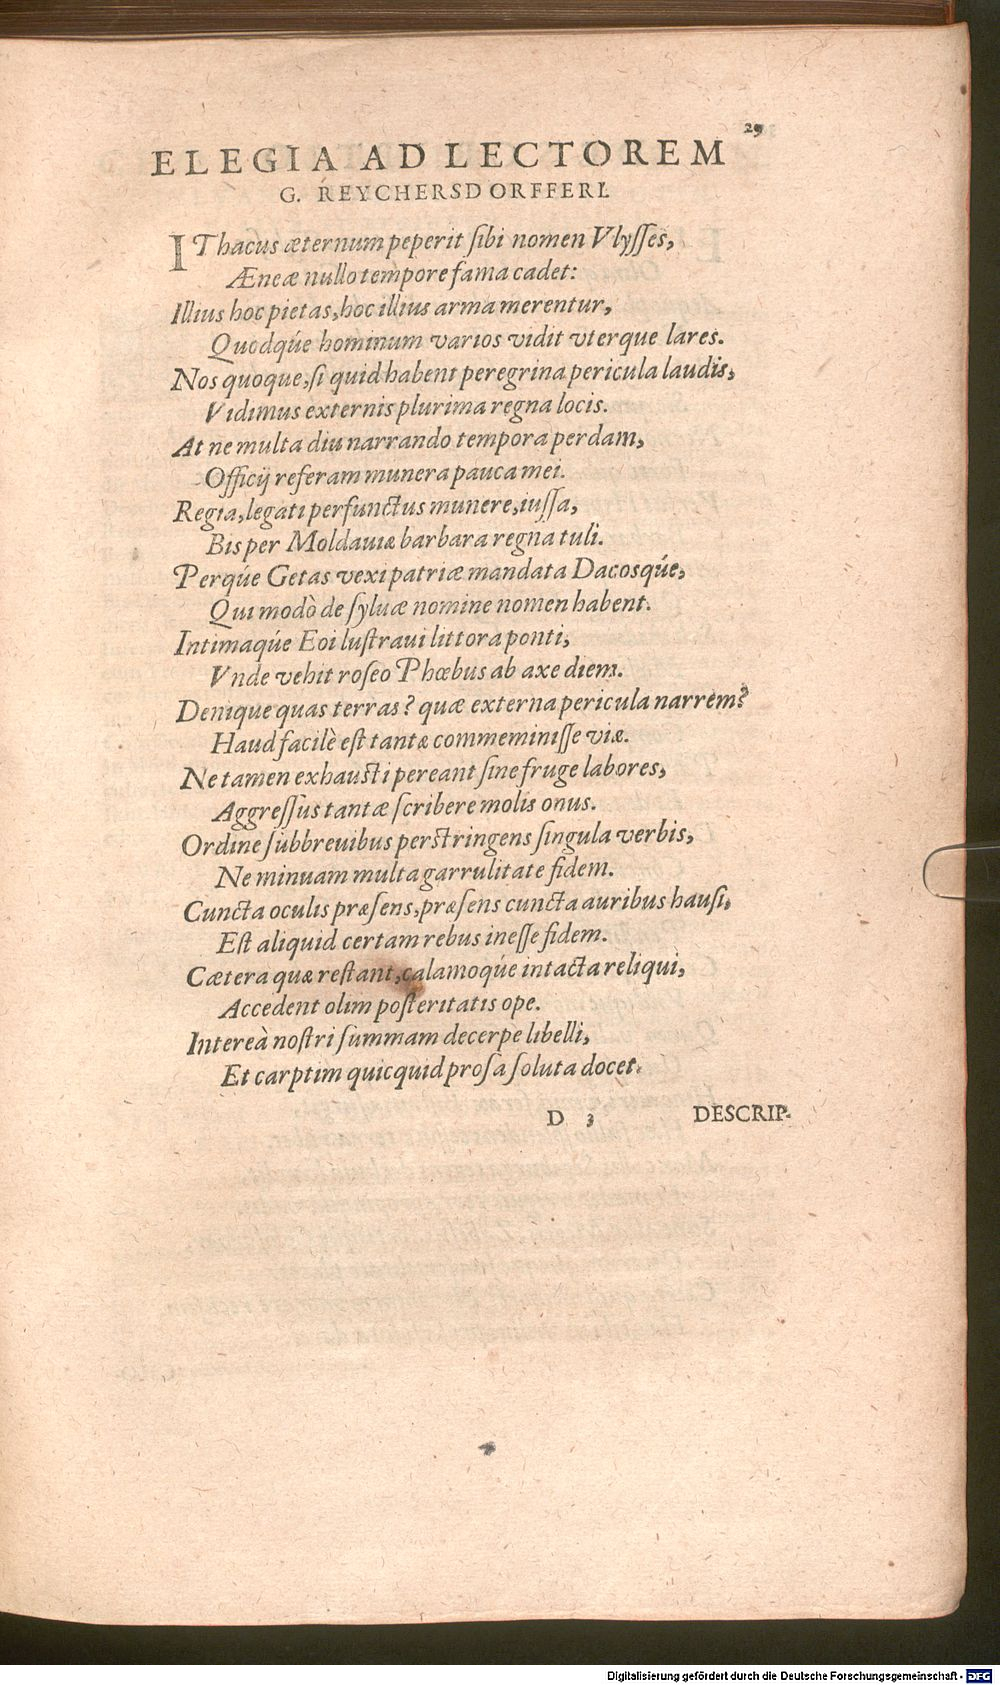 29
ELEGIA AD LECTOREM
G. REYCHERSDORFFERI.
IThacus æternum peperit sibi nomen Vlysses,
Æneæ nullo tempore fama cadet:
Illius hoc pietas, hoc illius arma merentur,
Quodqúe hominum varios vidit vterque lares.
Nos quoque, si quid habent peregrina pericula laudis,
Vidimus externis plurima regna locis.
At ne multa diu narrando tempora perdam,
Officij referam munera pauca mei.
Regia, legati perfunctus munere, iussa,
Bis per Moldauiæ barbara regna tuli.
Perqúe Getas vexi patriæ mandata Dacosqúe,
Qui modò de syluæ nomine nomen habent.
Intimaqúe Eoi lustraui littora ponti,
Vnde vehit roseo Phœbus ab axe diem.
Denique quas terras? quæ externa pericula narrem?
Haud facilè est tantæ commeminisse viæ.
Ne tamen exhausti pereant sine fruge labores,
Aggressus tantæ scribere molis onus.
Ordine sub breuibus perstringens singula verbis,
Ne minuam multa garrulitate fidem.
Cuncta oculis præsens, præsens cuncta auribus hausi,
Est aliquid certam rebus inesse fidem.
Cætera quæ restant, calamoqúe intacta reliqui,
Accedent olim posteritatis ope.
Intereà nostri summam decerpe libelli,
Et carptim quicquid prosa soluta docet.
D 3 DESCRIP-
Digitalisierung gefördert durch die Deutsche Forschungsgemeinschaft - DFG